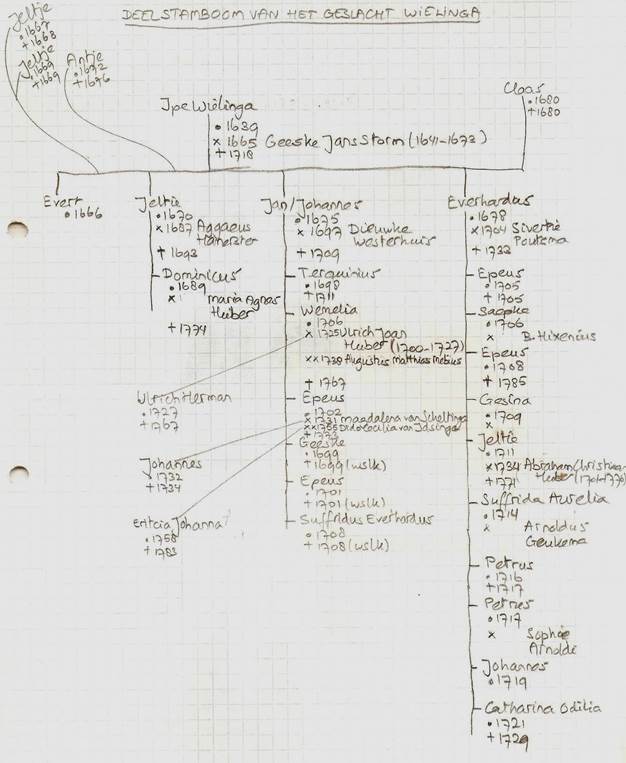 DEELSTAMBOOM VAN HET GESLACHT WIELINGA
Jeltje
• 1667
+ 1668
Jeltje
• 1669
+ 1669
Antje
• 1672
+ 1676
Claas
• 1680
+ 1680
Ipe Wielinga
• 1639
x 1665 Geeske Jans Storm (1641-1673)
+ 1718
Evert
• 1666
Jeltie
• 1670
x 1687 Aggaeus
Hamerster
+ 1693
Dominicus
• 1689
x Maria Agnes
Huber
+ 1774
Jan/Johannes
• 1675
x 1697 Dieuwke
Westerhuis
+ 1709
Terquinius
• 1698
+ 1711
Wemelia
• 1706
x 1725 Ulrich Joan
Huber (1700-1727)
xx 1738 Augustus Matthias Mebius
+ 1767
Ulrich Herman
• 1727
+ 1767
Epeus
• 1702
x 1731 Magdalena van Scheltinga
xx 1755 Dido Cecilia van Idsinga
+ 1773
Johannes
• 1732
+ 1734
Johanna
• 1758
+ 1783
Geeske
• 1699
+ 1699 (wslk)
Epeus
• 1701
+ 1701 (wslk)
Suffridus Everhardus
• 1708
+ 1708 (wslk)
Everhardus
• 1678
x 1704 Sivertie
Poutsma
+ 1733
Epeus
• 1705
+ 1705
Saepke
• 1706
x B. Hixenius
Epeus
• 1708
+ 1785
Gesina
• 1709
x
Jeltie
• 1711
x 1734 Abraham Christiaan
+ 1771 Huber
Suffrida Aurelia
• 1714
x Arnoldus
Geukema
Petrus
• 1716
+ 1717
Petrus
• 1717
x Sophie
Arnoldi
Johannes
• 1719
Catharina Odilia
• 1721
+ 1729